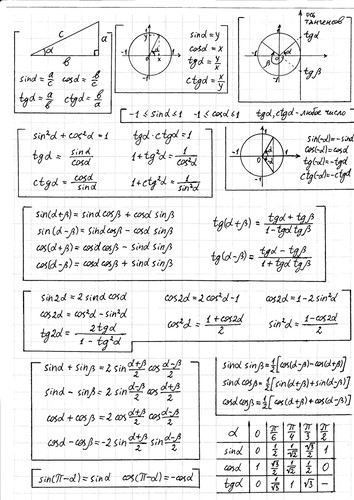 c
a
α
b
sinα = a/c cosα = b/c
tgα = a/b ctgα = b/a
y
1
-1
x
sinα = y
cosα = x
tgα = y/x
ctgα = x/y
ось тангенсов
tgα
-1
α
β
tgβ
-1 ≤ sinα ≤ 1 -1 ≤ cosα ≤ 1 tgα, ctgα - любое число
sin²α + cos²α = 1 tgα · ctgα = 1
tgα = sinα/cosα 1 + tg²α = 1/cos²α
ctgα = cosα/sinα 1 + ctg²α = 1/sin²α
sin(-α) = -sinα
cos(-α) = cosα
tg(-α) = -tgα
ctg(-α) = -ctgα
sin(α+β) = sinα cosβ + cosα sinβ
sin(α-β) = sinα cosβ - cosα sinβ
cos(α+β) = cosα cosβ - sinα sinβ
cos(α-β) = cosα cosβ + sinα sinβ
tg(α+β) = tgα + tgβ / 1 - tgα tgβ
tg(α-β) = tgα - tgβ / 1 + tgα tgβ
sin2α = 2 sinα cosα cos2α = 2cos²α - 1 cos2α = 1 - 2sin²α
cos2α = cos²α - sin²α
tg2α = 2tgα / 1 - tg²α cos²α = 1 + cos2α / 2 sin²α = 1 - cos2α / 2
sinα + sinβ = 2 sin α+β/2 cos α-β/2
sinα - sinβ = 2 sin α-β/2 cos α+β/2
cosα + cosβ = 2 cos α+β/2 cos α-β/2
cosα - cosβ = -2 sin α+β/2 sin α-β/2
sinα sinβ = 1/2 [cos(α-β) - cos(α+β)]
sinα cosβ = 1/2 [sin(α+β) + sin(α-β)]
cosα cosβ = 1/2 [cos(α+β) + cos(α-β)]
sin(π-α) = sinα cos(π-α) = -cosα
α 0 π/6 π/4 π/3 π/2
sinα 0 1/2 1/√2 √3/2 1
cosα 1 √3/2 1/√2 1/2 0
tgα 0 1/√3 1 √3 -